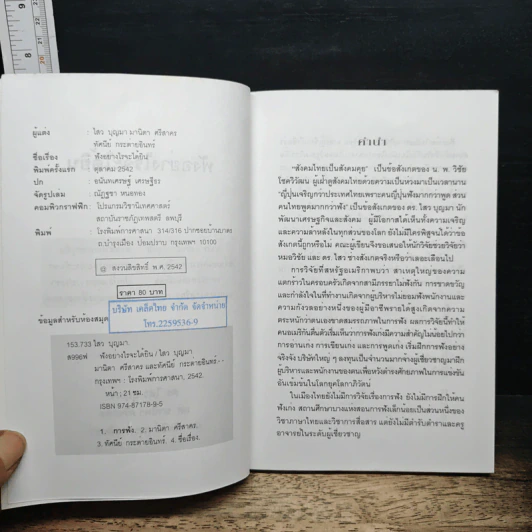 ผู้แต่ง : ไสว บุญมา มานิตา ศรีสาคร
ทัศนีย์ กระต่ายอินทร์
ชื่อเรื่อง : ฟังอย่างไรจะได้ยิน
พิมพ์ครั้งแรก : ตุลาคม 2542
ปก : อนันทเศรษฐ์ เศรษฐีธร
จัดรูปเล่ม : ณัฏฐชา หน่อทอง
คอมพิวกราฟฟิก : โปรแกรมวิชานิเทศศาสตร์
สถาบันราชภัฏเทพสตรี ลพบุรี
พิมพ์ : โรงพิมพ์การศาสนา 314/316 ปากซอยบ้านบาตร
ถ.บำรุงเมือง ป้อมปราบ กรุงเทพฯ 10100
@ สงวนลิขสิทธิ์ พ.ศ. 2542
ราคา 80 บาท
บริษัท เคล็ดไทย จำกัด จัดจำหน่าย
โทร.2259536-9
ข้อมูลสำหรับห้องสมุด
153.733 ไสว บุญมา.
ส996ฟ ฟังอย่างไรจะได้ยิน / ไสว บุญมา.
มานิตา ศรีสาคร และทัศนีย์ กระต่ายอินทร์--
กรุงเทพฯ : โรงพิมพ์การศาสนา, 2542.
หน้า ; 21 ซม.
ISBN 974-87178-9-5
1. การฟัง. 2. มานิตา ศรีสาคร.
3. ทัศนีย์ กระต่ายอินทร์. 4. ชื่อเรื่อง.
คำนำ
"สังคมไทยเป็นสังคมคุย" เป็นข้อสังเกตของ น. พ. วิชัย
โชควิวัฒน ผู้เฝ้าดูสังคมไทยด้วยความเป็นห่วงมาเป็นเวลานาน
"ญี่ปุ่นเจริญกว่าประเทศไทยเพราะคนญี่ปุ่นฟังมากกว่าพูด ส่วน
คนไทยพูดมากกว่าฟัง" เป็นข้อสังเกตของ ดร. ไสว บุญมา นัก
พัฒนาเศรษฐกิจและสังคม ผู้มีโอกาสได้เห็นทั้งความเจริญ
และความล้าหลังในทุกส่วนของโลก ยังไม่มีใครพิสูจน์ได้ว่าข้อ
สังเกตนี้ถูกหรือไม่ คณะผู้เขียนจึงขอเสนอให้นักวิจัยช่วยวิจัยว่า
หมอวิชัย และ ดร. ไสว ช่างสังเกตจริงหรือว่าเลอะเลือนไป
การวิจัยที่สหรัฐอเมริกาพบว่า สาเหตุใหญ่ของความ
แตกร้าวในครอบครัวเกิดจากสามีภรรยาไม่ฟังกัน การขาดขวัญ
และกำลังใจในที่ทำงานเกิดจากผู้บริหารไม่ยอมฟังพนักงานและ
ความกังวลอย่างหนึ่งของผู้มีอาชีพรายได้สูงเกิดจากความ
ตระหนักว่าตนเองขาดสมรรถภาพในการฟัง ผลการวิจัยนี้ทำให้
คนอเมริกันตื่นตัวเริ่มเห็นว่าการฟังเก่งมีความสำคัญไม่น้อยไปกว่า
การอ่านเก่ง การเขียนเก่ง และการพูดเก่ง เริ่มฝึกการฟังอย่าง
จริงจัง บริษัทใหญ่ ๆ ลงทุนเป็นจำนวนมากจ้างผู้เชี่ยวชาญมาฝึก
ผู้บริหารและพนักงานของตนเพื่อหวังดำรงศักยภาพในการแข่งขัน
อันเข้มข้นในโลกยุคโลกาภิวัตน์
ในเมืองไทยยังไม่มีการวิจัยเรื่องการฟัง ยังไม่มีการฝึกให้คน
ฟังเก่ง สถานศึกษาบางแห่งสอนการฟังเล็กน้อยเป็นส่วนหนึ่งของ
วิชาภาษาไทยและวิชาการสื่อสาร แต่ยังไม่มีตำรับตำราและครู
อาจารย์ในระดับผู้เชี่ยวชาญ